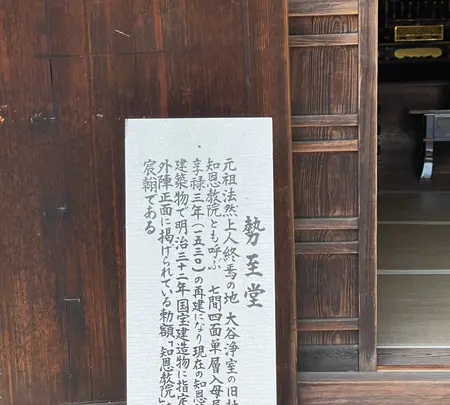 勢至堂
元祖法然上人終焉の地 大谷浄室の旧址
知恩教院とも呼ぶ 七間四面単層入母屋
享禄三年(一五三〇)の再建になり現在の知恩
建築物で明治三十二年国宝建造物に指定
外陣正面に掲げられている勅額「知恩教院」
宸翰である